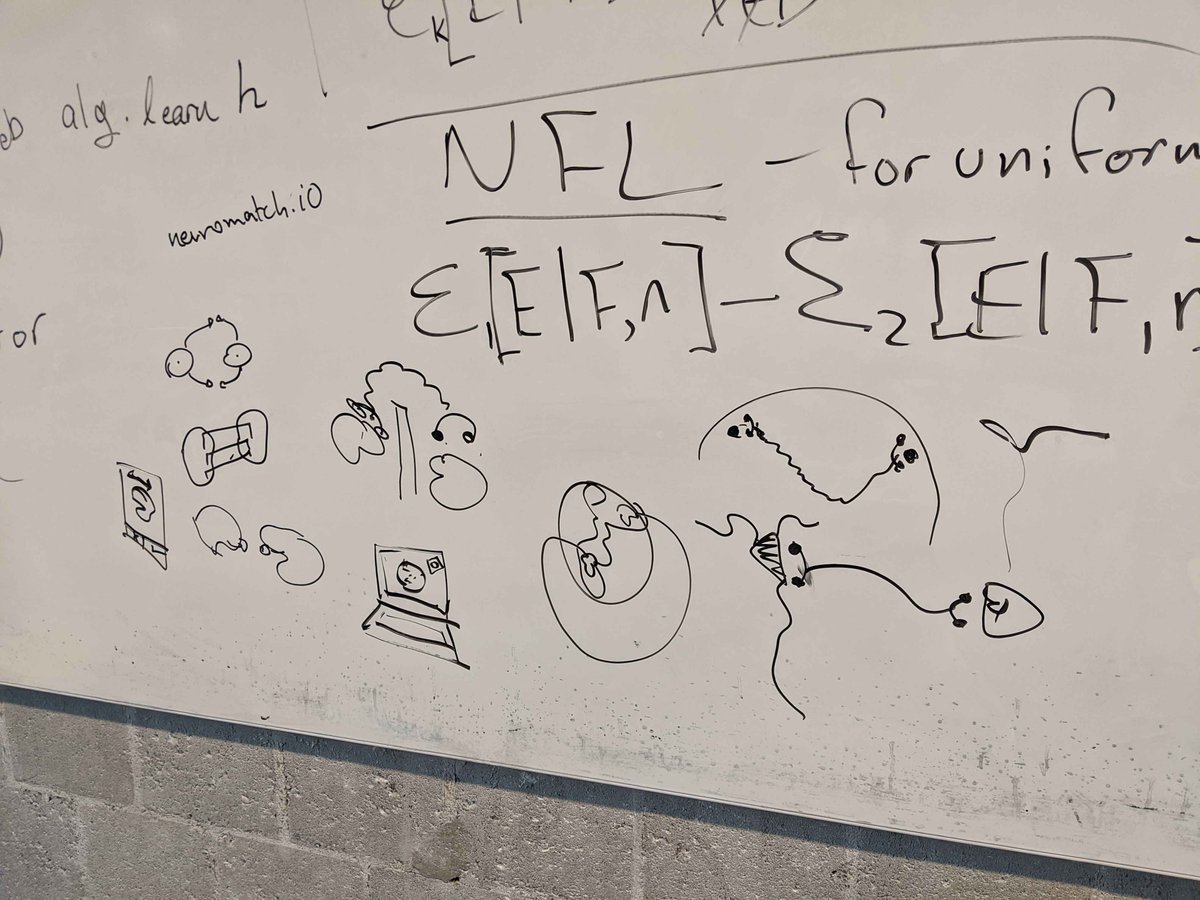 alg. learn h
NFL - for uniform
neuromatch.io
Ɛ₁[E|F,n] - Ɛ₂[E|F,n]
or